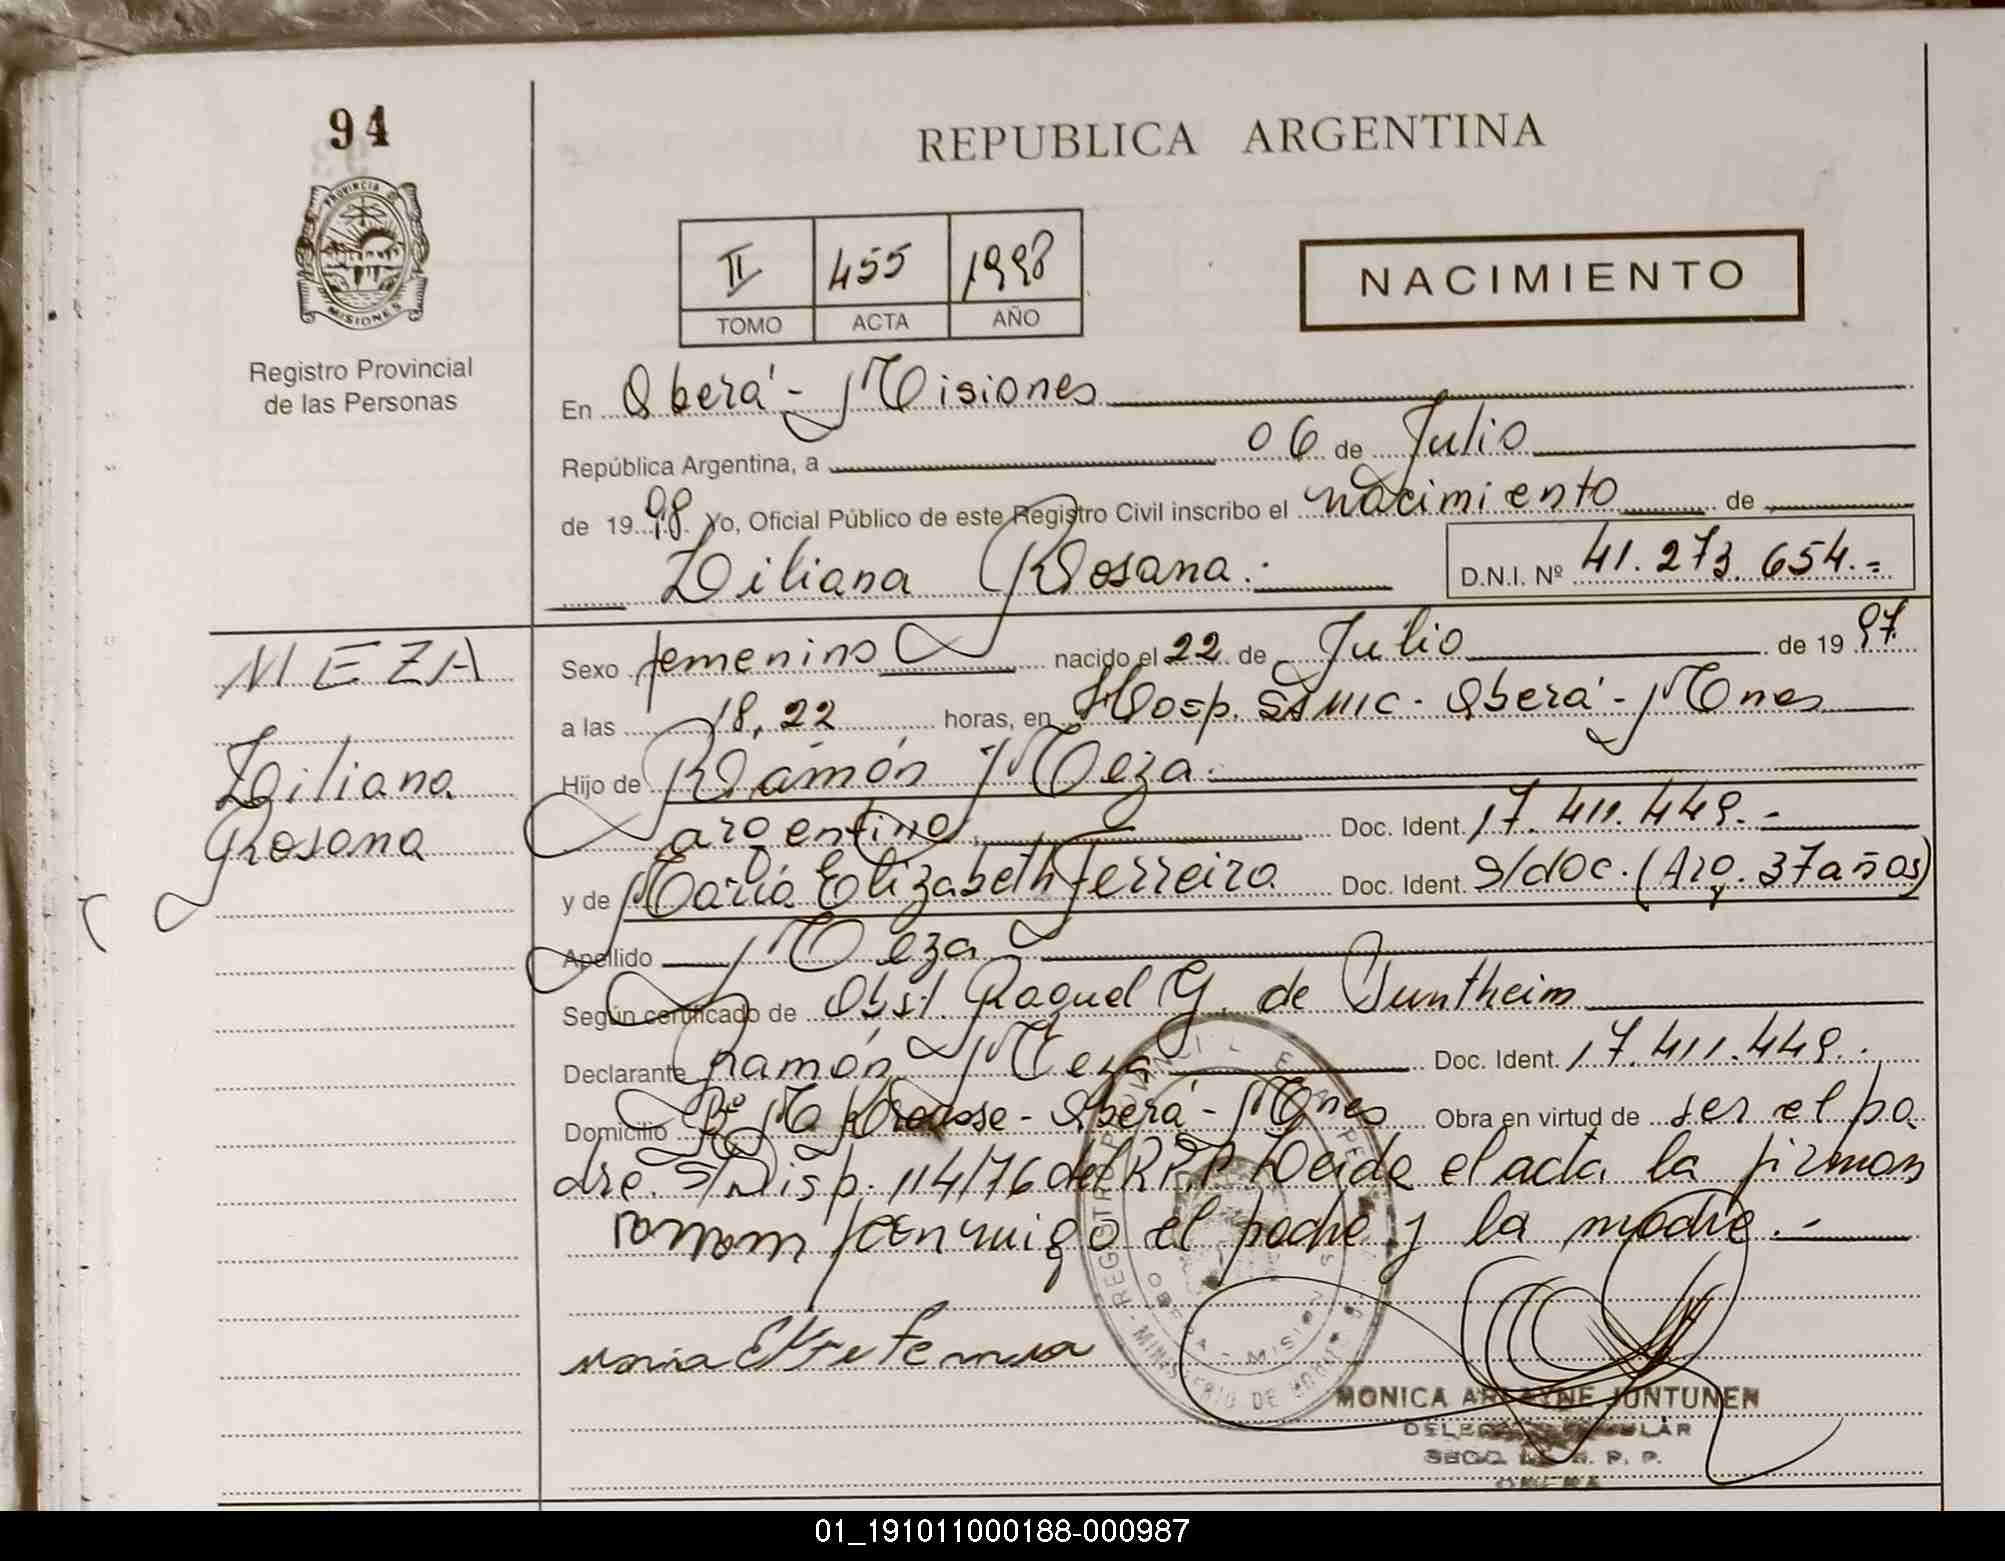 94
REPUBLICA ARGENTINA
PROVINCIA DE
MISIONES
Registro Provincial
de las Personas
II 455 1998
TOMO ACTA AÑO
NACIMIENTO
En Oberá - Misiones
República Argentina, a 06 de Julio
de 1998. Yo, Oficial Público de este Registro Civil inscribo el nacimiento de
Liliana Rosana.
D.N.I. Nº 41.273.654.-
MEZA
Liliana
Rosana
Sexo femenino nacido el 22 de Julio de 1997.
a las 18,22 horas, en Hosp. SAMIC - Oberá - Mnes
Hijo de Ramón Meza.
argentino, Doc. Ident. 17.411.449.-
y de María Elizabeth Ferreira Doc. Ident. s/doc. (Arg. 37 años)
Apellido Meza
Según certificado de Obst. Raquel G. de Suntheim
Declarante Ramón Meza Doc. Ident. 17.411.449.
Domicilio Bº M. Krausse - Oberá - Mnes Obra en virtud de ser el pa
dre. s/Disp. 114/76 del R.P.P. Leida el acta la firman
conmigo el padre y la madre.-
REGISTRO PROVINCIAL DE LAS PERSONAS
OBERA - MISIONES
MINISTERIO DE GOBIERNO
MONICA ARLAYNE JUNTUNEN
R. P. P.
OBERA
01_191011000188-000987